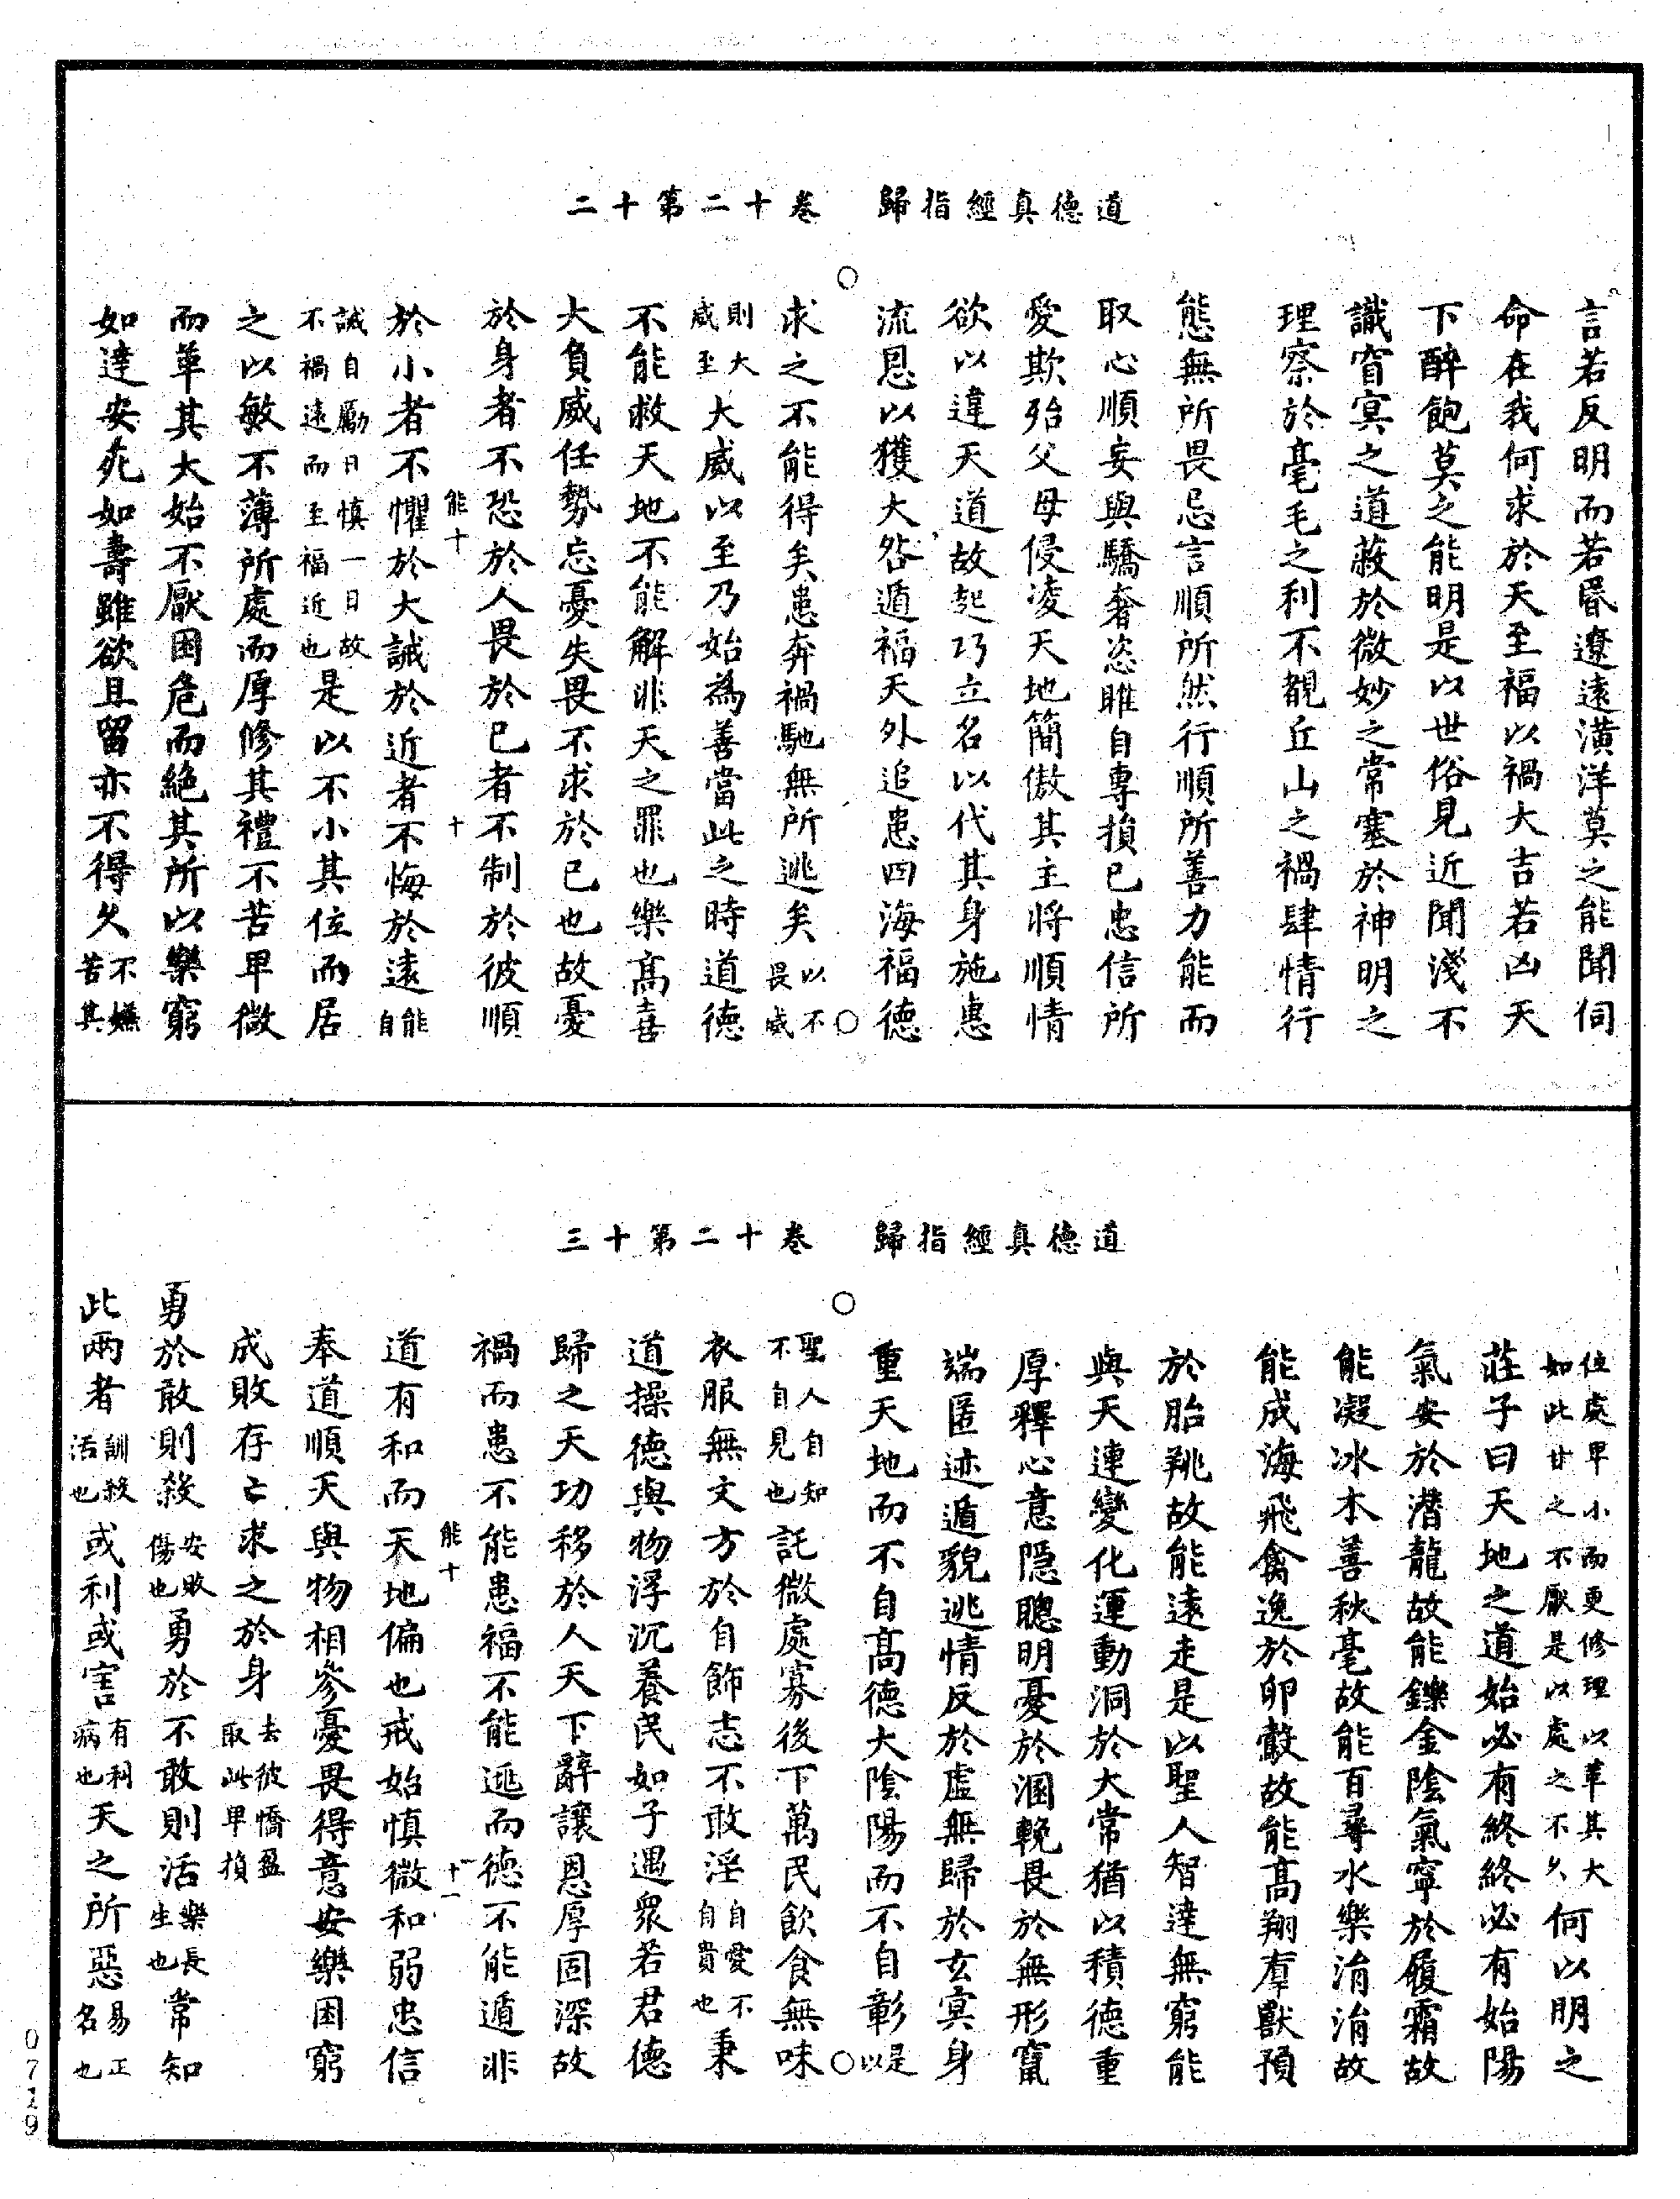 道德真經指歸　卷十二第十二
言若反明而若昬遼遠潢洋莫之能聞伺
命在我何求於天至福以禍大吉若凶天
下醉飽莫之能明是以世俗見近聞淺不
識窅冥之道蔽於微妙之常塞於神明之
理察於毫毛之利不覩丘山之禍肆情行
態無所畏忌言順所然行順所善力能而
取心順妄與驕奢恣睢自專損已忠信所
愛欺殆父母侵淩天地簡傲其主將順情
欲以違天道故起巧立名以代其身施恵
流恩以獲大咎遁福天外追患四海福德
○　○
求之不能得矣患奔禍馳無所逃矣以不畏威
則大威至大威以至乃始為善當此之時道德
不能救天地不能解非天之罪也樂高喜
大負威任勢忘憂失畏不求於已也故憂
於身者不恐於人畏於已者不制於彼順
能十　十
於小者不懼於大誡於近者不悔於遠能自
誡自勵日慎一日故不禍遠而至福近也是以不小其位而居
之以敏不薄所處而厚修其禮不苦卑微
而革其大始不厭困危而絶其所以樂窮
如達安死如壽雖欲且留亦不得久不嫌苦其
道德真經指歸　卷十二第十三
位處卑小而更修理以革其大如此甘之不厭是以處之不久何以明之
莊子曰天地之道始必有終終必有始陽
氣安於潛龍故能鑠金陰氣寧於履霜故
能凝冰木善秋毫故能百尋水樂涓涓故
能成海飛禽逸於卵鷇故能高翔羣獸預
於胎𦍩故能遠走是以聖人智達無窮能
與天連變化運動洞於大常猶以積德重
厚釋心意隱聰明憂於溷輓畏於無形竄
端匿迹遁貌逃情反於虛無歸於玄冥身
重天地而不自高德大陰陽而不自彰是以
○　○
聖人自知不自見也託微處寡後下萬民飲食無味
衣服無文方於自飾志不敢淫自愛不自貴也秉
道操德與物浮沉養民如子遇眾若君德
歸之天功移於人天下辭讓恩厚固深故
禍而患不能患福不能逃而德不能遁非
能十　十一
道有和而天地偏也戒始慎微和弱忠信
奉道順天與物相參憂畏得意安樂困窮
成敗存亡求之於身去彼憍盈取此卑損
勇於敢則殺安敗傷也勇於不敢則活樂長生也常知
此兩者訓殺活也或利或害有利病也天之所惡易正名也
0719